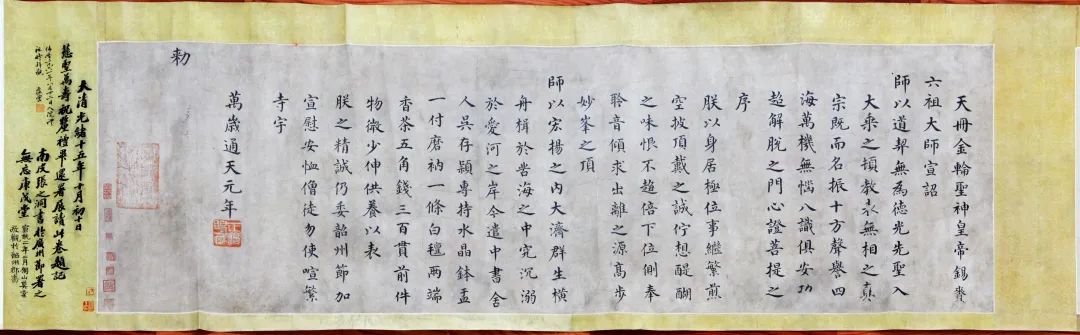 天冊金輪聖神皇帝錫賚
六祖大師宣詔
師以道契無為德光先聖入
大乘之頓教表無相之真
宗既而名振十方聲譽四
海萬機無惱八識俱安功
超解脫之門心證菩提之
序
朕以身居極位事繼繁煎
空披頂戴之誠佇想醍醐
之味恨不趨倍下位側奉
聆音傾求出離之源高步
妙峯之頂
師以宏揚之內大濟群生橫
舟楫於苦海之中究沉溺
於愛河之岸今遣中書舍
人吳存穎專持水晶鉢盂
一付磨衲一條白氊兩端
香茶五角錢三百貫前件
物微少伸供養以表
朕之精誠仍委韶州節加
宣慰安恤僧徒勿使喧繁
寺宇
萬歲通天元年
勅
大清光緒十五年十月初十日
慈聖萬壽祝釐禮畢還署展讀此卷題記
南皮張之洞書於廣州節署之
無忘康茂堂